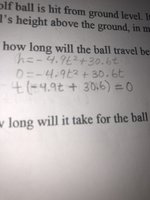 olf ball is hit from ground level. I
l's height above the ground, in m
how long will the ball travel be
h=-4.9t²+30.6t
0=-4.9t²+30.6t
t(-4.9t + 30.6) = 0
long will it take for the ball